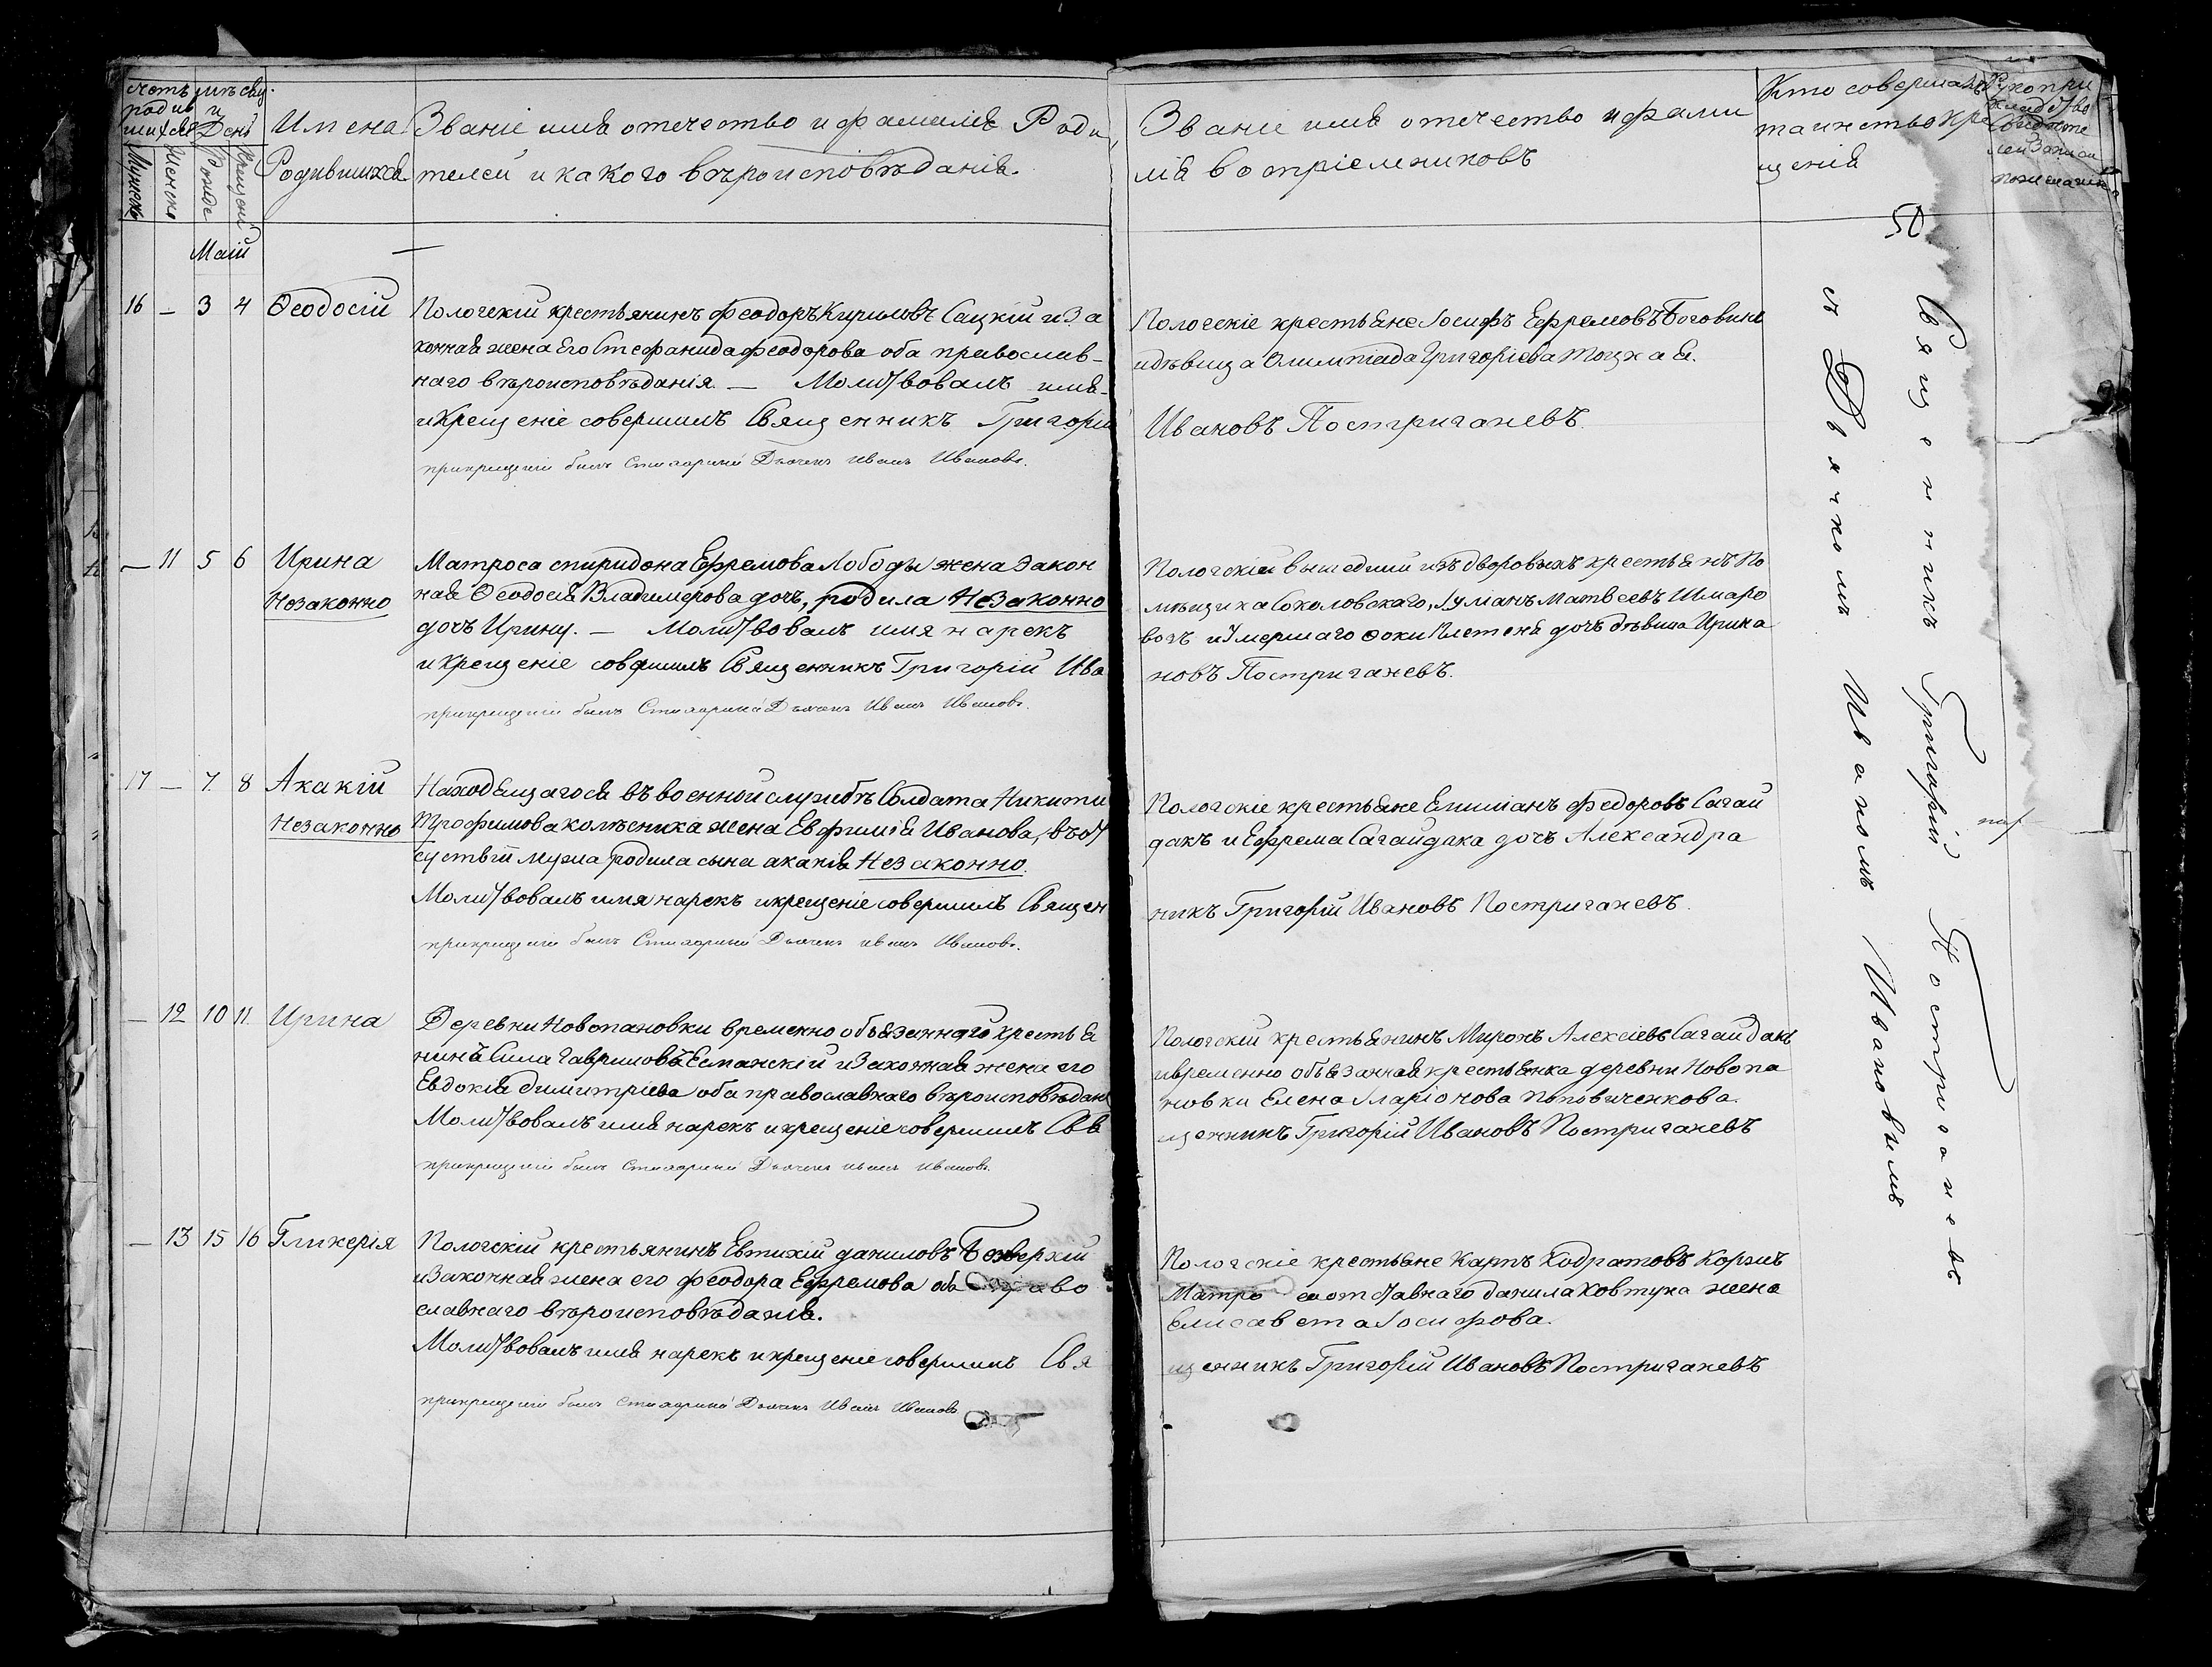 Счетъ родив шихся
Мѣсяц. и День
Мужеска
Женска
Рожде
Крещені
Имена
Родившихся
Званіе имя отечество и фамиліе Роди
телей и какого вѣроисповѣданія.
Званіе имя отечество и фами
лія воспріемниковъ
Кто совершалъ
таинство кре
щенія
Рукопри
кладство
Свидѣте
лей записи
по желанію
50
Маій
16 — 3 4 Ѳеодосій
Пологскій крестьянинъ Феодоръ Кириловъ Сацкій и За
конная жена Его Стефанида Феодорова оба православ-
наго вѣроисповѣданія. — Молитвовалъ имя
и Крещеніе совершилъ Священникъ Григорій
прикрещеніи былъ Стихарный Дьячекъ Иванъ Ивановъ.
Пологскіе крестьяне Іосифъ Ефремовъ Боговинъ
и дѣвица Олимпіада Григоріева Тоцкая.
Ивановъ Постриганевъ.
— 11 5 6 Ирина
Незаконно
Матроса спиридона Ефремова Лободы жена закон
ная Ѳеодосія Владимерова дочь, родила незаконно
дочь Ирину. — Молитвовалъ имя нарекъ
и крещеніе совершилъ Священникъ Григорій Ива
прикрещеніи былъ Стихарный Дьячекъ Иванъ Ивановъ.
Пологскій вышедшій изъ дворовыхъ крестьянъ По
мѣщика Соколовскаго, Іуліанъ Матвеевъ Шмаро
возъ и Умершаго Фоки Плетеня дочь дѣвица Ирина
новъ Постриганевъ.
17 — 7 8 Акакій
Незаконно
Находящагося въ военной службѣ Солдата Никиты
Трофимова колѣсника жена Евфимія Иванова, въ от
сутствіи мужа родила сына акакія Незаконно.
Молитвовалъ имя нарекъ и крещеніе совершилъ Священ
прикрещеніи былъ Стихарный Дьячекъ Иванъ Ивановъ.
Пологскіе крестьяне Епишанъ Федоровъ Сагай
дакъ и Ефрема Сагайдака дочь Александра
никъ Григорій Ивановъ Постриганевъ.
— 12 10 11 Ирина
Деревни Новопановки временно обязаннаго крестья
нинъ Сила Гавриловъ Есманскій и Законная жена его
Евдокія димитріева оба православнаго вѣроисповѣдан
Молитвовалъ имя нарекъ и крещеніе совершилъ Свя
прикрещеніи былъ Стихарный Дьячекъ Иванъ Ивановъ.
Пологскій крестьянинъ Миронъ Алексіевъ Сагайдакъ
и временно обязанная крестьянка деревни Новопа
новки Елена Иларіонова Поповиченкова.
щенникъ Григорій Ивановъ Постриганевъ
— 13 15 16 Гликерія
Пологскій крестьянинъ Евтихій даниловъ Безверхій
и Законная жена его Феодора Ефремова оба право
славнаго вѣроисповѣданія.
Молитвовалъ имя нарекъ и крещеніе совершилъ Свя
прикрещеніи былъ Стихарный Дьячекъ Иванъ Ивановъ
Пологскіе крестьяне Карпъ Кодратовъ Коржъ
Матро отставнаго данила Ковтуна жена
Елисавета Іосифова.
щенникъ Григорій Ивановъ Постриганевъ
Священникъ Григорій Постриганевъ
съ Дьячкомъ Иваномъ Ивановымъ